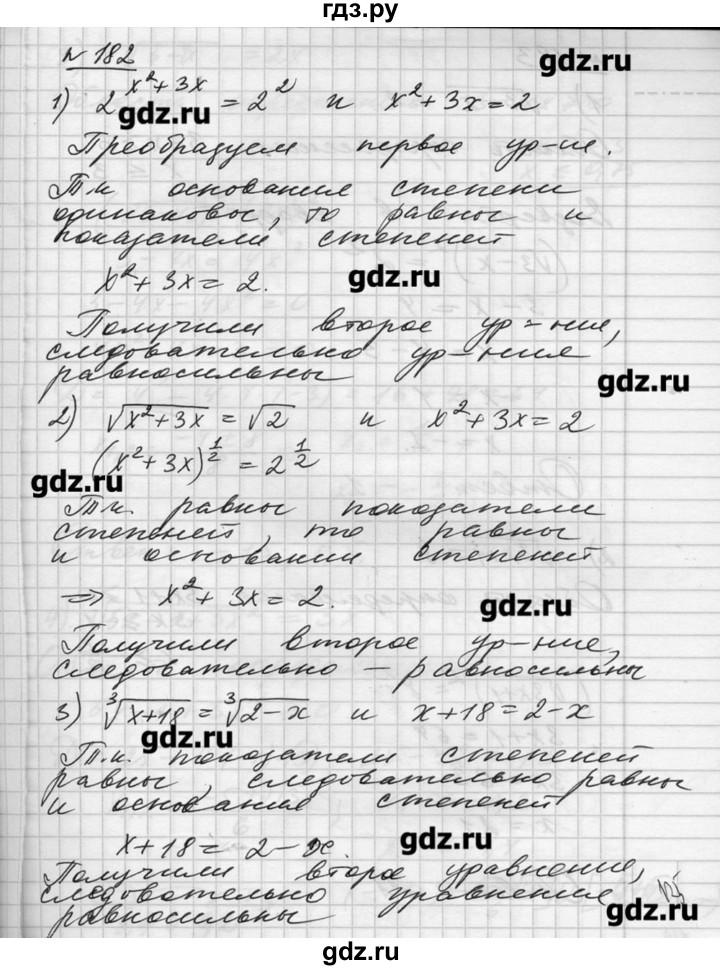 гдз.ру
N 182
gdz.ru
1) 2^(x²+3x) = 2² и x²+3x=2
gdz.ru
Преобразуем первое ур-ие.
Т.к основания степени
одинаковы, то равны и
показатели степеней
x²+3x=2.
gdz.ru
Получили второе ур-ние,
следовательно ур-ния
равносильны
gdz.ru
2) √(x²+3x) = √2 и x²+3x=2
(x²+3x)^(1/2) = 2^(1/2)
gdz.ru
Т.к. равны показатели
степеней, то равны
и основании степеней
⇒ x²+3x=2.
gdz.ru
Получили второе ур-ние,
следовательно – равносильны
3) ∛(x+18) = ∛(2-x) и x+18=2-x
gdz.ru
Т.к. показатели степеней
равны, следовательно равны
и основания степеней
x+18= 2-x.
gdz.ru
Получили второе уравнение,
следовательно уравнения
равносильны
gdz.ru
gdz.ru